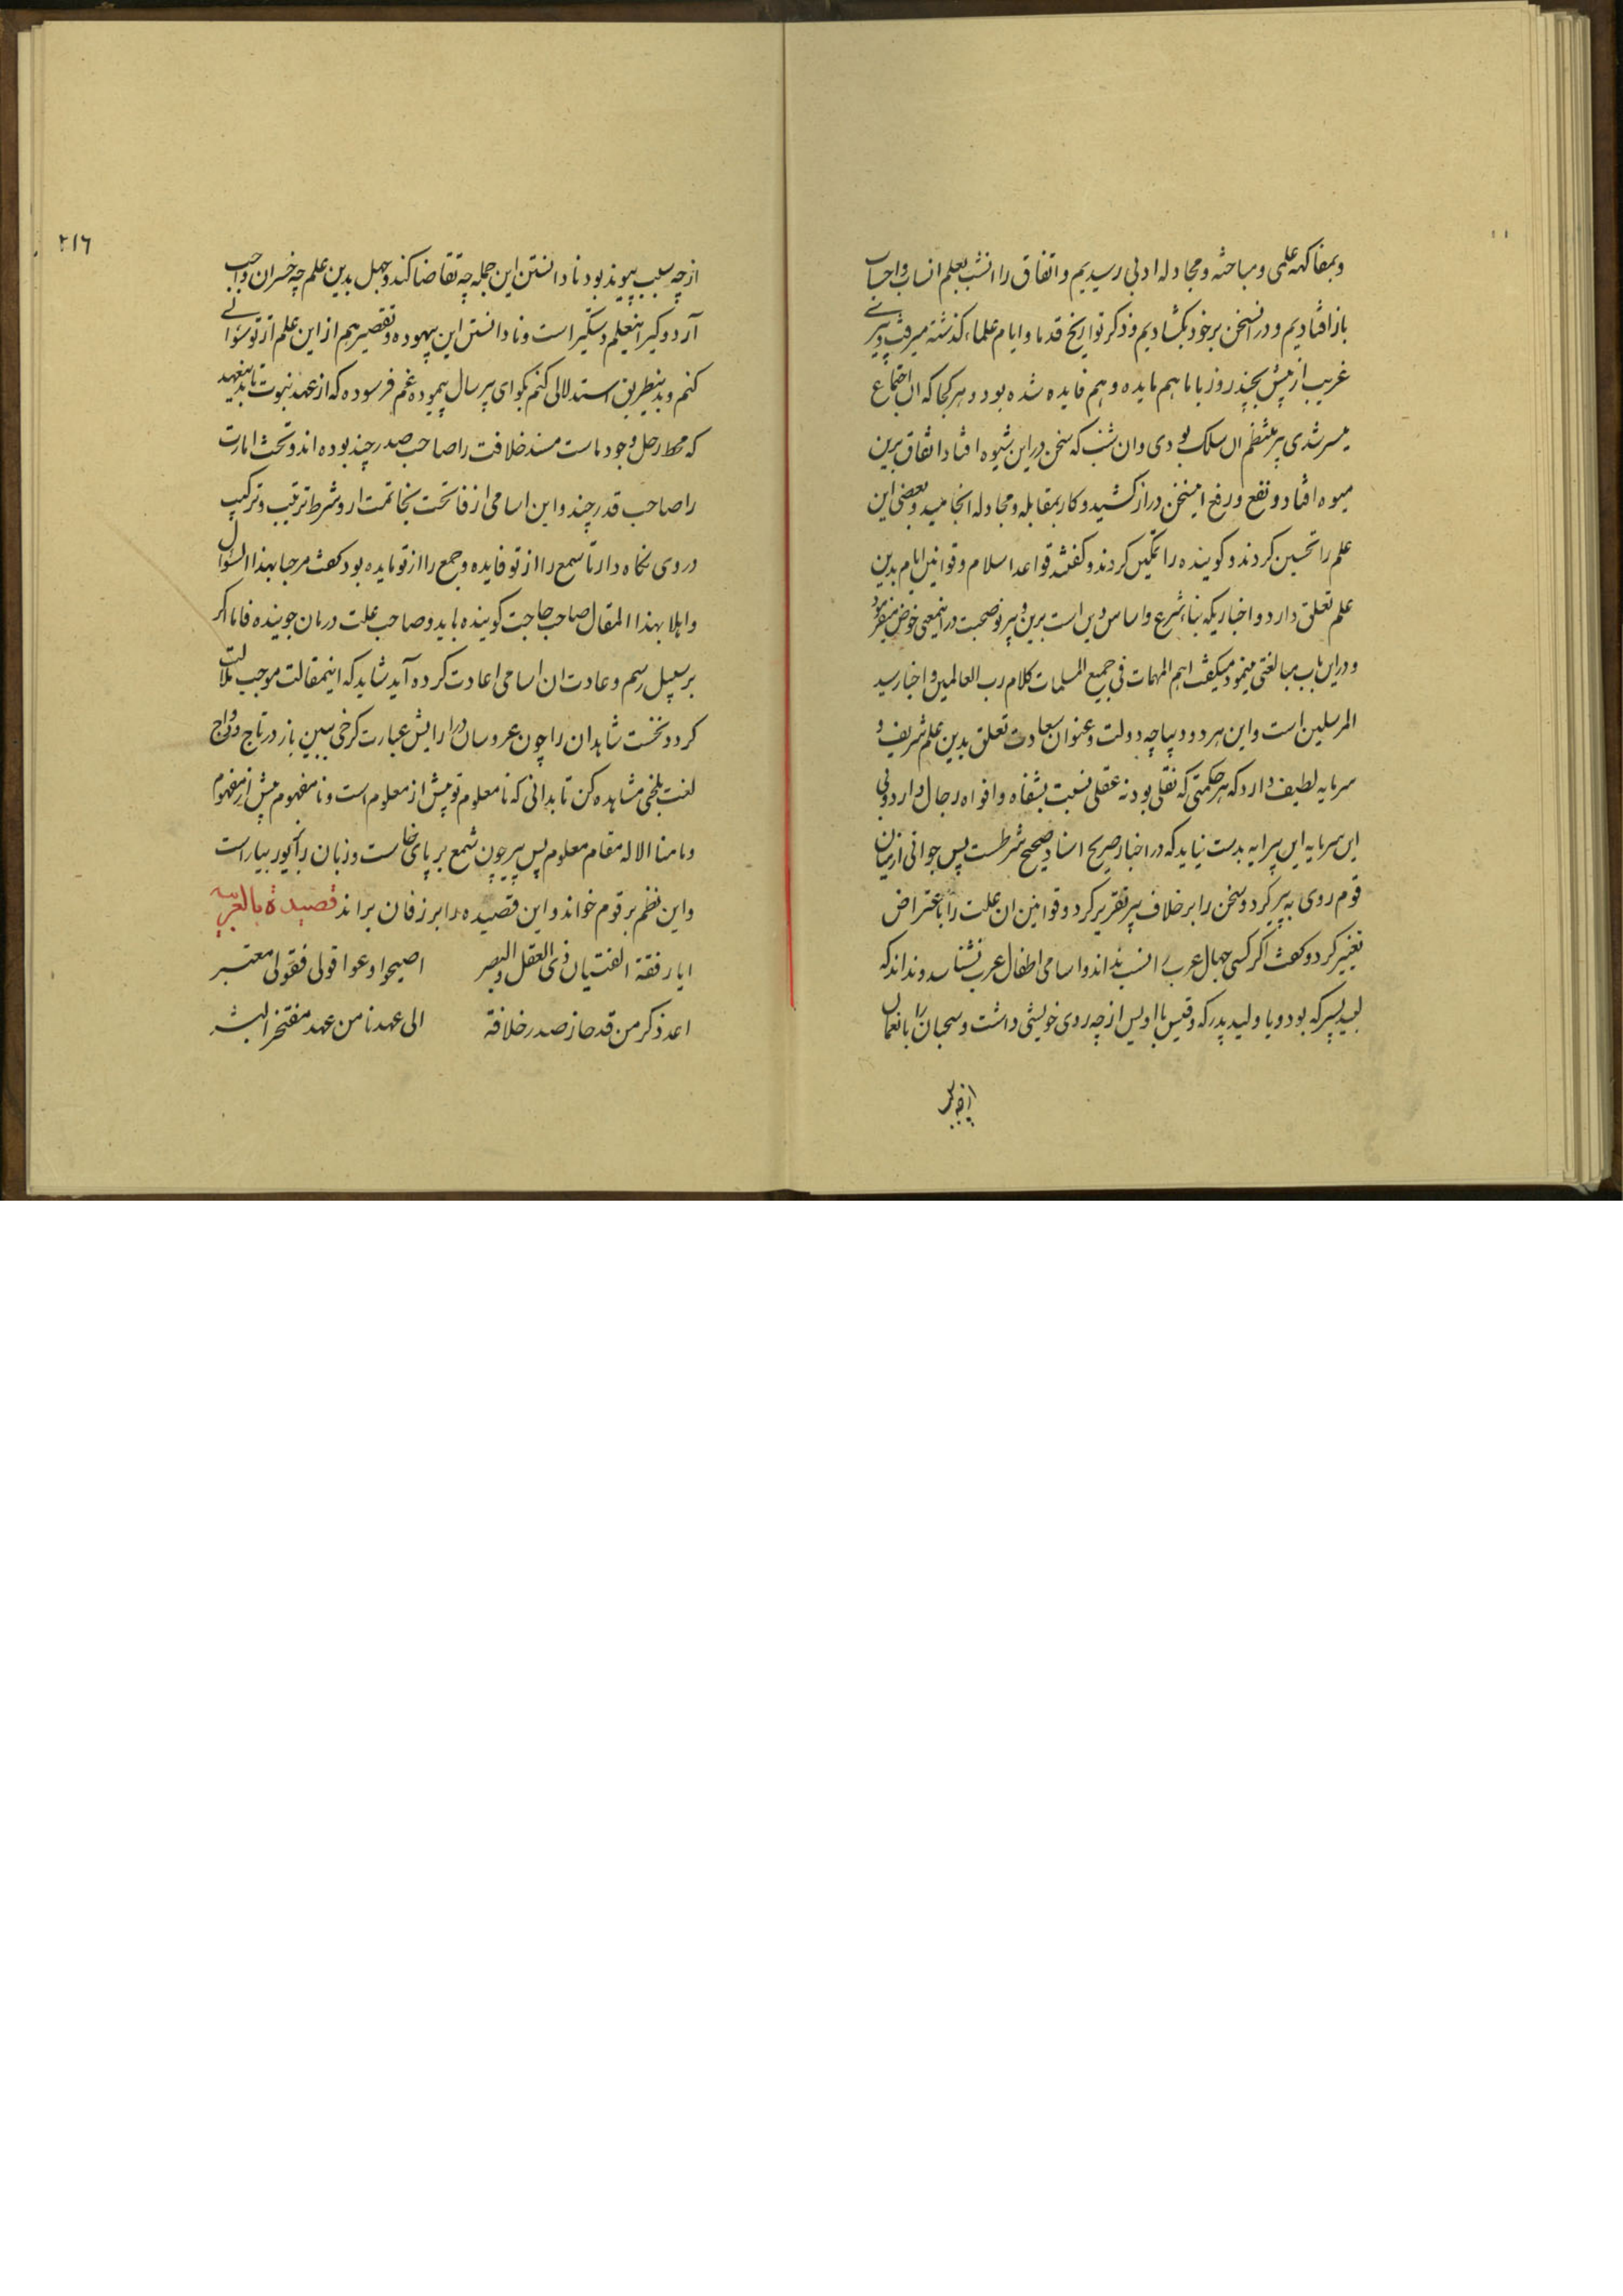 وبمفاکهه علمی ومباحثه ومجادله ادبی رسیدیم واتفاق را انشب بعلم انساب واحساب
باز افتادیم ودر انسخن برخود بکشادیم وذکر تواریخ قدما وایام علماء کذشته میرفت وپیری
غریب از پیش بچند روز باما هم مایده وهم فایده شده بود وهر کجا که ان اجتماع
میسر شدی پیر منتظم ان سلک بودی وان شب که سخن در این شیوه افتاد واتفاق برین
میوه افتاد ونفع ورفع اینسخن دراز کشید وکار بمقابله ومجادله انجامید وبعضی این
علم را تحسین کردند وکوینده را تمکین کردند وکفتند قواعد اسلام وقوانین ایام بدین
علم تعلق دارد واخباریکه بناء شرع واساس دین است برین وپیر نوصحبت در اینمعنی خوض میفرمود
ودراین باب مبالغتی مینمود ومیکفت اهم المهمات فی جمیع المسلمات کلام رب العالمین واخبار سید
المرسلین است واین هر دو دیباچه دولت وعنوان سعادت تعلق بدین علم شریف و
سرمایه لطیف دارد که هر حکمتی که نقلی بود نه عقلی نسبت بشفاه وافواه رجال دارد وبی
این سرمایه این پیرایه بدست نیاید که در اخبار صریح اسناد صحیح شرطست پس جوانی از میان
قوم روی به پیر کرد وسخن را برخلاف پیر تقریر کرد وقوانین ان علت را باعتراض
تغییر کرد وکفت اکر کسی جهال عرب را نسب نداند واسامی اطفال عرب نشناسد ونداند که
لبید پسر که بود ویا ولید پدر که وقیس با اویس از چه روی خویشی داشت وسحبان را با نعمان
از چه سبب
۲۱۶
از چه سبب پیوند بود نادانستن این جمله چه تقاضا کند وجهل بدین علم چه خسران واجب
آرد وکیر اینعلم دستکیر است ونادانستن این بیهوده وتقصیر هم از این علم از تو سؤالی
کنم وبدینطریق استدلالی کنم بکو ای پیر سال پیموده غم فرسوده که از عهد نبوت تا بدینعهد
که محط رحل وجود ماست مسند خلافت را صاحب صدر چند بوده اند وتخت امارت
را صاحب قدر چند واین اسامی از فاتحت بخاتمت ار وشرط ترتیب وترکیب
در وی نکاه دار تا سمع را از تو فایده وجمع را از تو مایده بود کفت مرحبا بهذا السؤال
واهلا بهذا المقال صاحب حاجت کوینده باید وصاحب علت درمان جوینده فاما اکر
بر سبیل رسم وعادت ان اسامی اعادت کرده آید شاید که اینمقالت موجب ملالت
کردد نخست شاهدان را چون عروسان در ارایش عبارت کرخی ببین باز در تاج ودواج
لغت بلخی مشاهده کن تا بدانی که نامعلوم تو بیش از معلوم است ونامفهوم بیش از مفهوم
وما منا الا له مقام معلوم پس پیر چون شمع بر پای خاست وزبان را چون بیاراست
واین نظم بر قوم خواند واین قصیده را بر زفان براند قصیدة بالعربیه
ایا رفقة الفتیان ذی العقل والبصر اصیحوا وعوا قولی فقولی معتبر
اعد ذکر من قد حاز صدر خلافة الی عهدنا من عهد مفتخر البشر